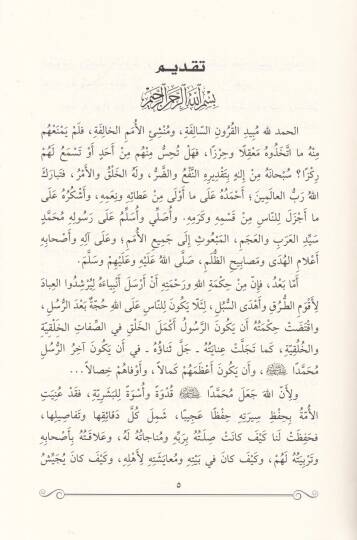 تقديم
بسم الله الرحمن الرحيم
الحمد لله مُبِيدِ القُرُونِ السّالِفَةِ، ومُنْشِئِ الأُمَمِ الخالِفَةِ، فَلَمْ يَمْنَعْهُم
مِنْهُ ما اتَّخَذُوهُ مَعْقِلًا وحِرْزًا، فَهَلْ تُحِسُّ مِنْهُم مِنْ أَحَدٍ أَوْ تَسْمَعُ لَهُمْ
رِكْزًا؟ سُبْحانَهُ مِنْ إِلهٍ بِتَقْدِيرِهِ النَّفْعُ والضُّرُّ، ولَهُ الخَلْقُ والأَمْرُ، فَتَبارَكَ
اللهُ رَبُّ العالَمِينَ؛ أَحْمَدُهُ عَلَى ما أَوْلَى مِنْ عَطائِهِ ونِعَمِهِ، وأَشْكُرُهُ عَلَى
ما أَجْزَلَ لِلنّاسِ مِنْ قَسْمِهِ وكَرَمِهِ. وأُصَلِّي وأُسَلِّمُ عَلَى رَسُولِهِ مُحَمَّدٍ
سَيِّدِ العَرَبِ والعَجَمِ، المَبْعُوثِ إِلَى جَمِيعِ الأُمَمِ؛ وعَلَى آلِهِ وأَصْحابِهِ
أَعْلامِ الهُدَى ومَصابِيحِ الظُّلَمِ، صَلَّى اللهُ عَلَيْهِ وعَلَيْهِمْ وسَلَّمَ.
أَمّا بَعْدُ، فَإِنَّ مِنْ حِكْمَةِ اللهِ ورَحْمَتِهِ أَنْ أَرْسَلَ أَنْبِياءَهُ لِيُرْشِدُوا العِبادَ
لِأَقْوَمِ الطُّرُقِ وأَهْدَى السُّبُلِ، لِئَلّا يَكُونَ لِلنّاسِ عَلَى اللهِ حُجَّةٌ بَعْدَ الرُّسُلِ،
واقْتَضَتْ حِكْمَتُهُ أَنْ يَكُونَ الرَّسُولُ أَكْمَلَ الخَلْقِ في الصِّفاتِ الخَلْقِيَّةِ
والخُلُقِيَّةِ، كَما تَجَلَّتْ عِنايَتُهُ - جَلَّ ثَناؤُهُ - في أَنْ يَكُونَ آخِرُ الرُّسُلِ
مُحَمَّدًا ﷺ، وأَن يَكُونَ أَعْظَمَهُمْ كَمالًا، وأَوْفاهُمْ خِصالًا...
ولِأَنَّ اللهَ جَعَلَ مُحَمَّدًا ﷺ قُدْوَةً وأُسْوَةً لِلبَشَرِيَّةِ، فَقَدْ عُنِيَتِ
الأُمَّةُ بِحِفْظِ سِيرَتِهِ حِفْظًا عَجِيبًا، شَمِلَ كُلَّ دَقائِقِها وتَفاصِيلِها،
فَحَفِظَتْ لَنا كَيْفَ كانَتْ صِلَتُهُ بِرَبِّهِ ومُناجاتُهُ لَهُ، وعَلاقَتُهُ بِأَصْحابِهِ
وتَرْبِيَتُهُ لَهُمْ، وكَيْفَ كانَ في بَيْتِهِ ومُعايَشَتِهِ لِأَهْلِهِ، وكَيْفَ كانَ يُجَيِّشُ
٥